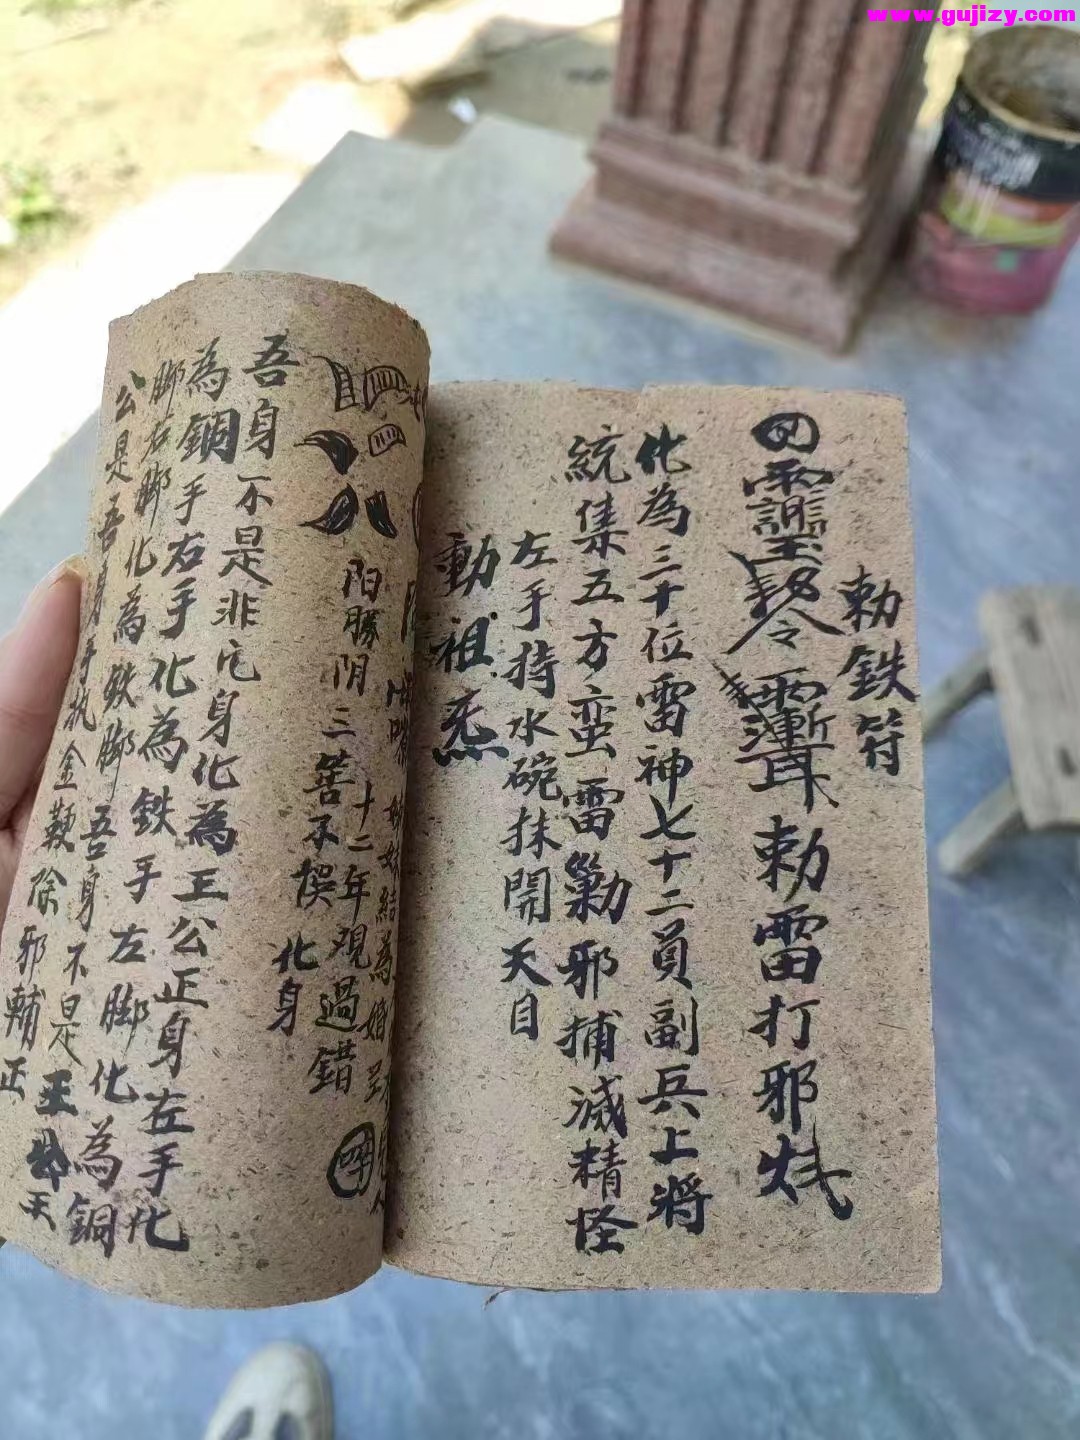 www.gujizy.com
勅鉄符
勅雷打邪
化為三十位雷神七十二員副兵上將
統集五方蛮雷勦邪捕滅精怪
左手持水碗抹開天目
動祖炁
結為婚
十二年观過錯
阳勝阴三筶不悮化身
吾身不是非凡身化為王公正身左手化
為銅手右手化為鉄手左脚化為銅
脚右脚化為鉄脚吾身不是王
公是吾身手执金鞭除邪輔正